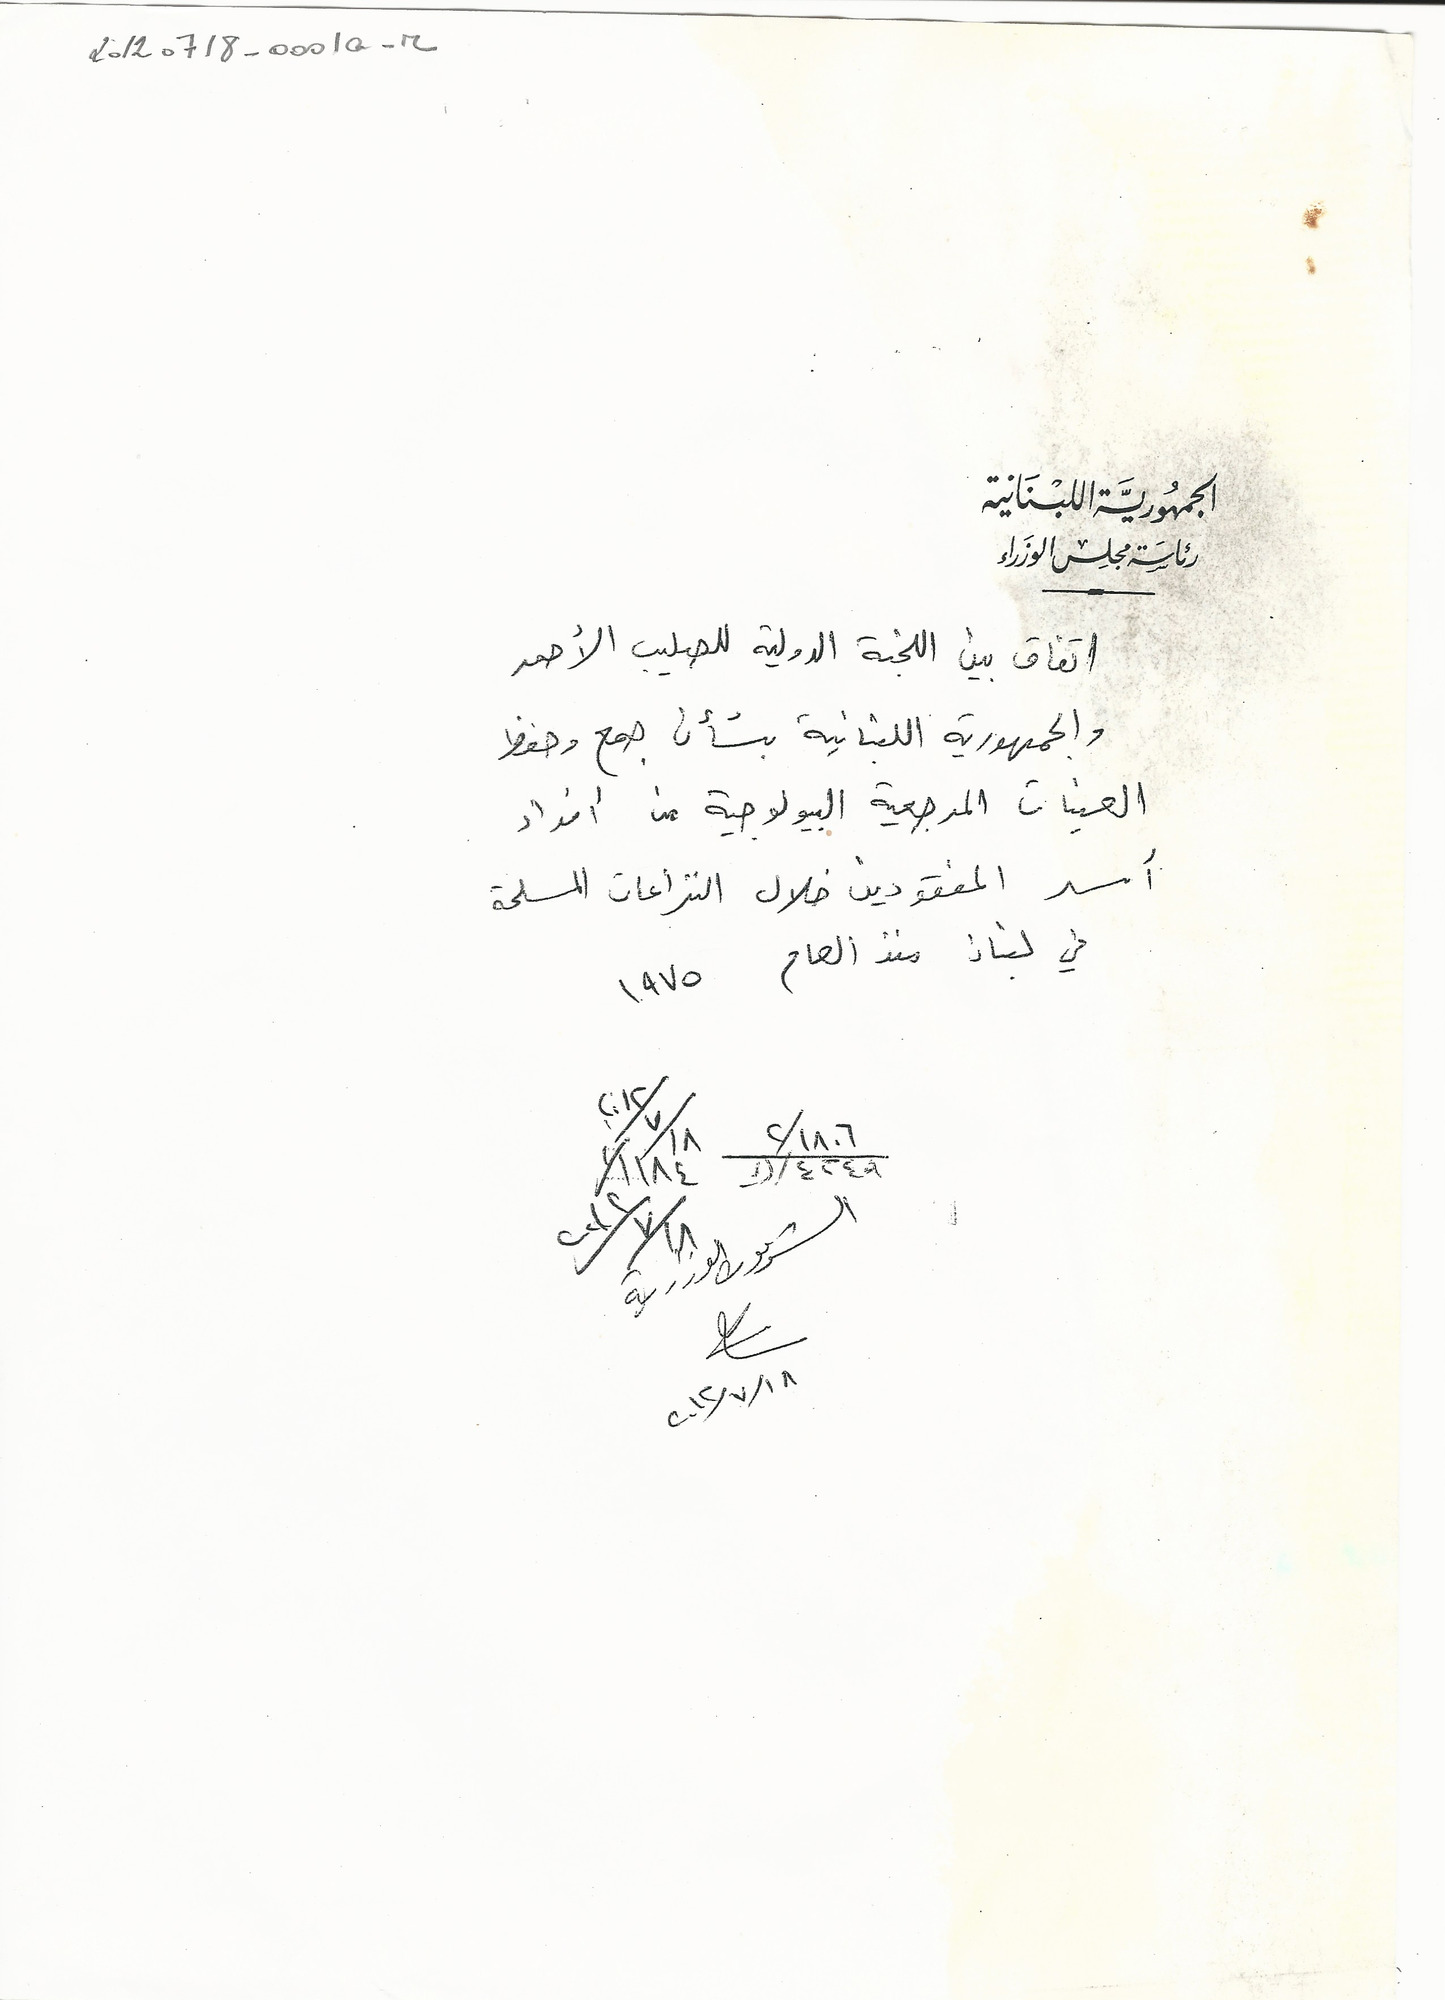 20120718-0001a-m
الجمهورية اللبنانية
رئاسة مجلس الوزراء
اتفاق بين اللجنة الدولية للصليب الأحمر
والجمهورية اللبنانية بشأن جمع وحفظ
العينات المرجعية البيولوجية من أفراد
أسر المفقودين خلال النزاعات المسلحة
في لبنان منذ العام ١٩٧٥
٢٠١٢/٧/١٨
٢/١٨٠٦
١١٨٤
٢٠١٢/٧/١٨
الشؤون الوزارية
٢٠١٢/٧/١٨